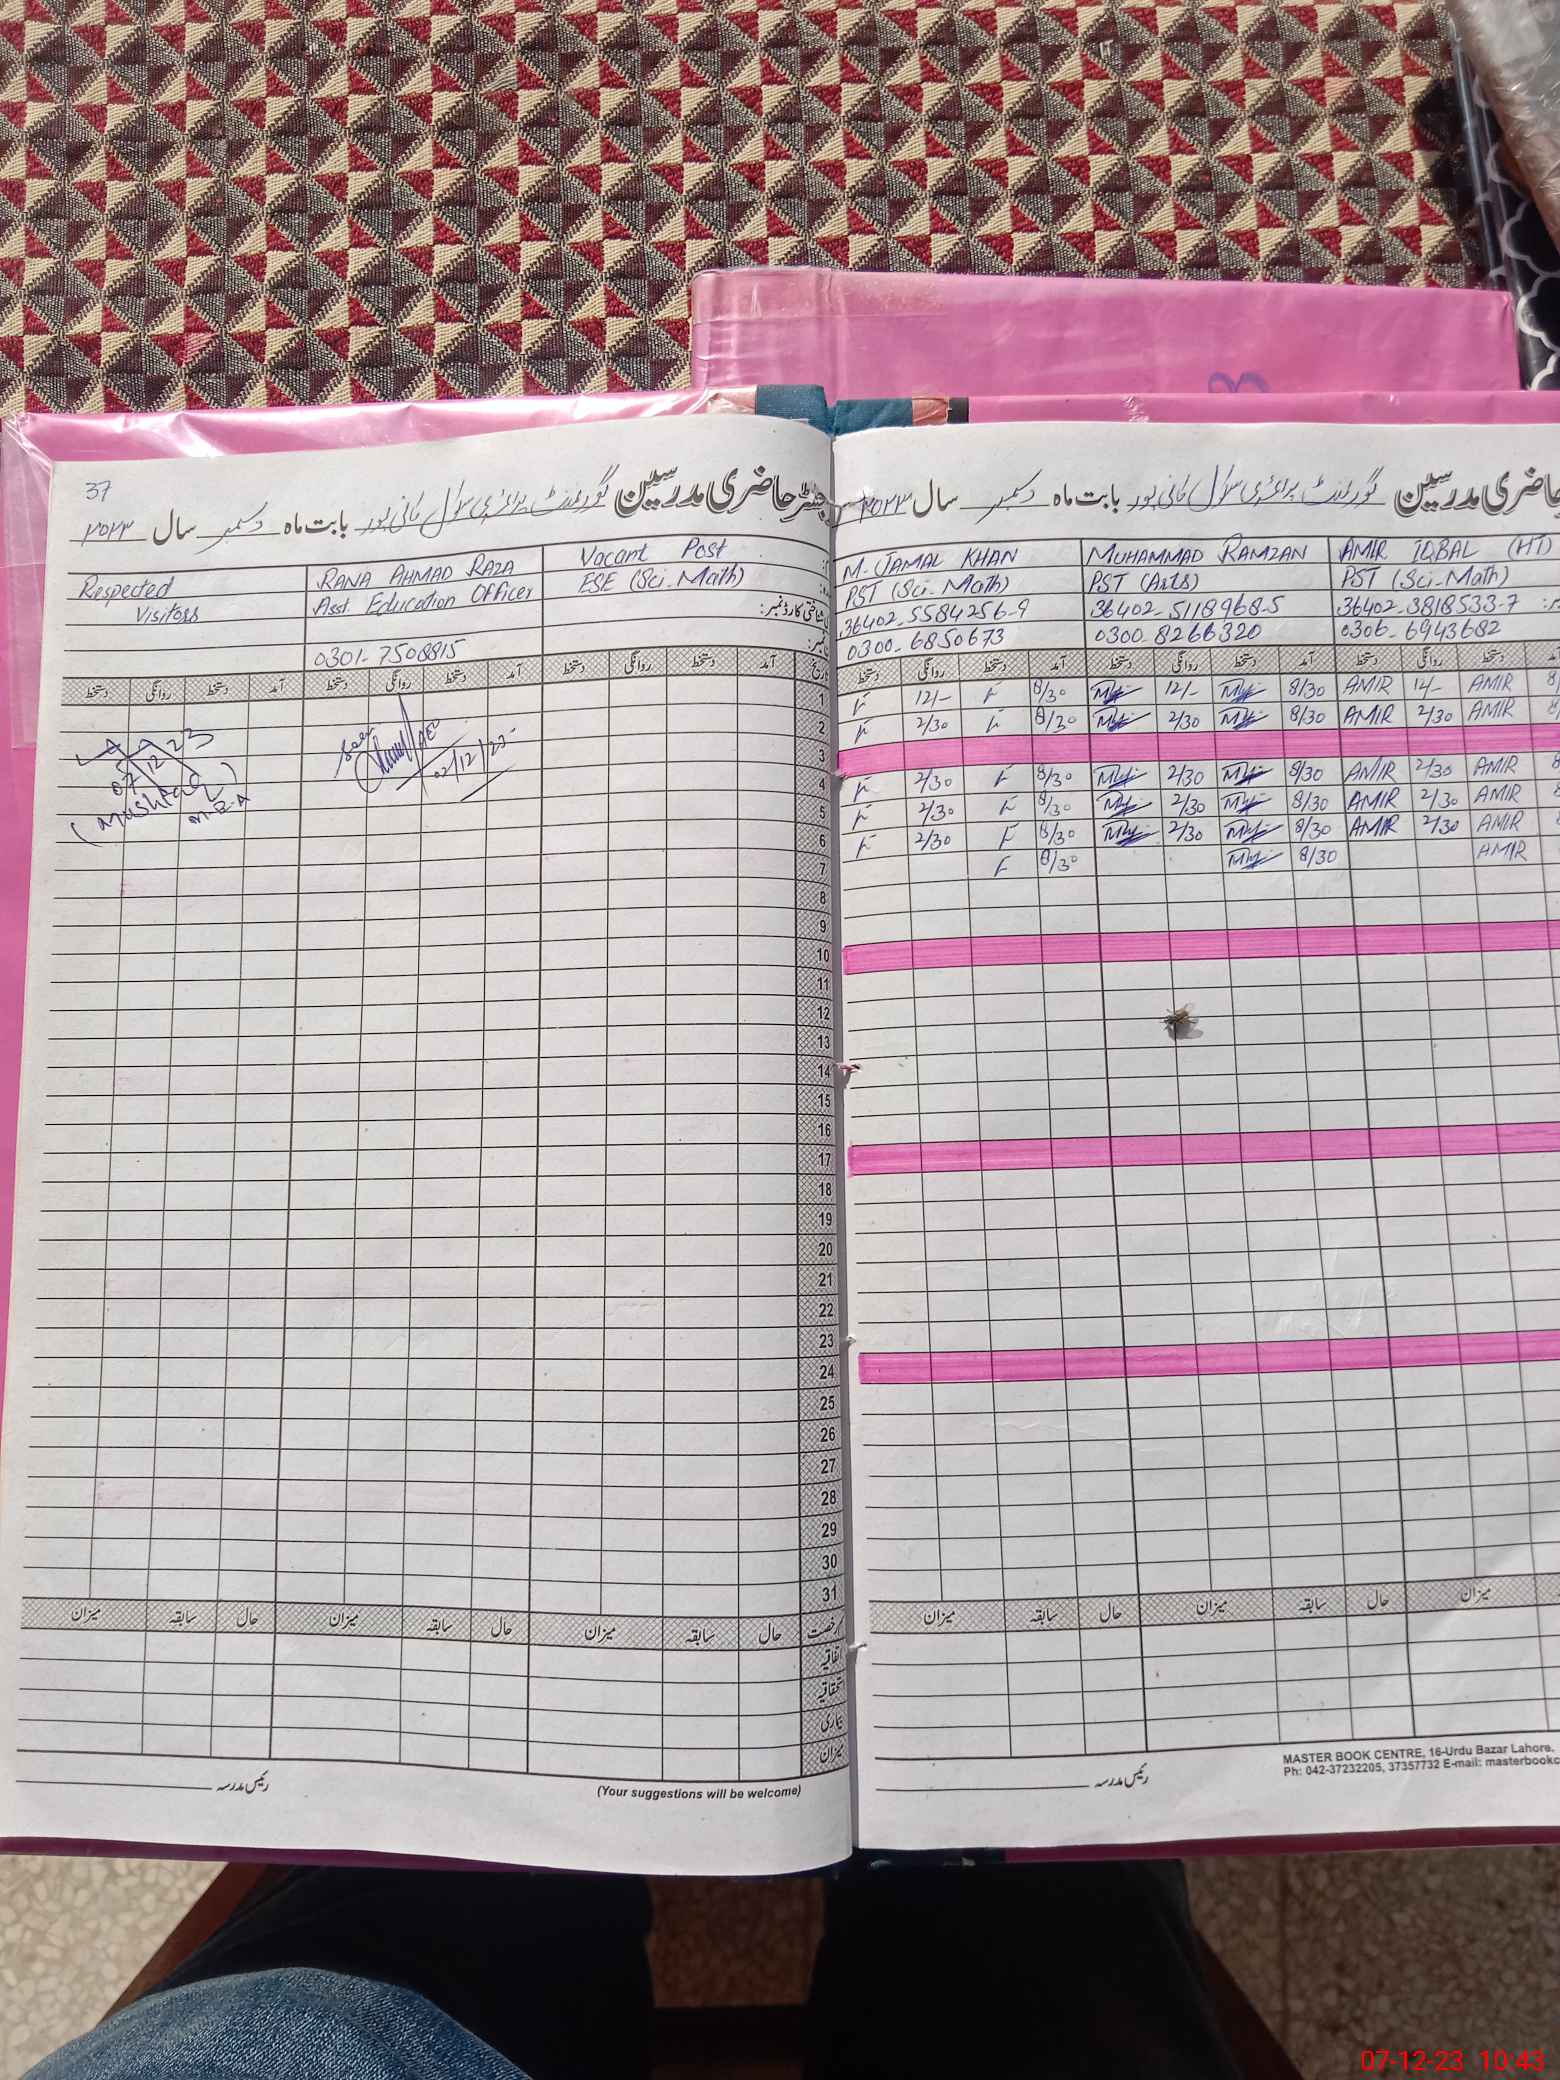 37
رجسٹر حاضری مدرسین گورنمنٹ پرائمری سکول بابت ماہ دسمبر سال ۲۰۲۳
Respected
Visitors
RANA AHMAD RAZA
Asst. Education Officer
0301-7508815
Vacant Post
ESE (Sci-Math)
شناختی کارڈ نمبر:
دستخط روانگی دستخط آمد دستخط روانگی دستخط آمد دستخط روانگی دستخط آمد تاریخ
07 12 23
(Mushtaq)
M.E.A
02/12/23
1
2
3
4
5
6
7
8
9
10
11
12
13
14
15
16
17
18
19
20
21
22
23
24
25
26
27
28
29
30
31
میزان سابقہ حال میزان سابقہ حال میزان سابقہ حال رخصت
اتفاقیہ
استحقاقیہ
بیماری
میزان
رئیس مدرسہ
(Your suggestions will be welcome)
حاضری مدرسین گورنمنٹ پرائمری سکول بابت ماہ دسمبر سال ۲۰۲۳
M. JAMAL KHAN
PST (Sci-Math)
36402-5584256-9
0300-6850673
MUHAMMAD RAMZAN
PST (Arts)
36402-5118968-5
0300-8266320
AMIR IQBAL (HT)
PST (Sci-Math)
36402-3818533-7
0306-6943682
دستخط روانگی دستخط آمد دستخط روانگی دستخط آمد دستخط روانگی دستخط
12/- 8/30 12/- 8/30 AMIR 12/- AMIR
2/30 8/30 2/30 8/30 AMIR 2/30 AMIR
2/30 8/30 2/30 8/30 AMIR 2/30 AMIR
2/30 8/30 2/30 8/30 AMIR 2/30 AMIR
2/30 8/30 2/30 8/30 AMIR 2/30 AMIR
8/30 8/30 AMIR
میزان سابقہ حال میزان سابقہ حال میزان
رئیس مدرسہ
MASTER BOOK CENTRE, 16-Urdu Bazar Lahore.
Ph: 042-37232205, 37357732 E-mail: masterbookc
07-12-23 10:43